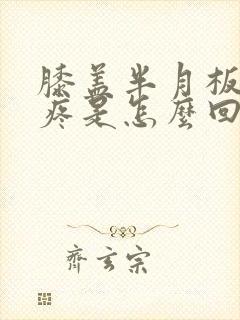 膝盖半月板
疼是怎麼回
齊玄宗